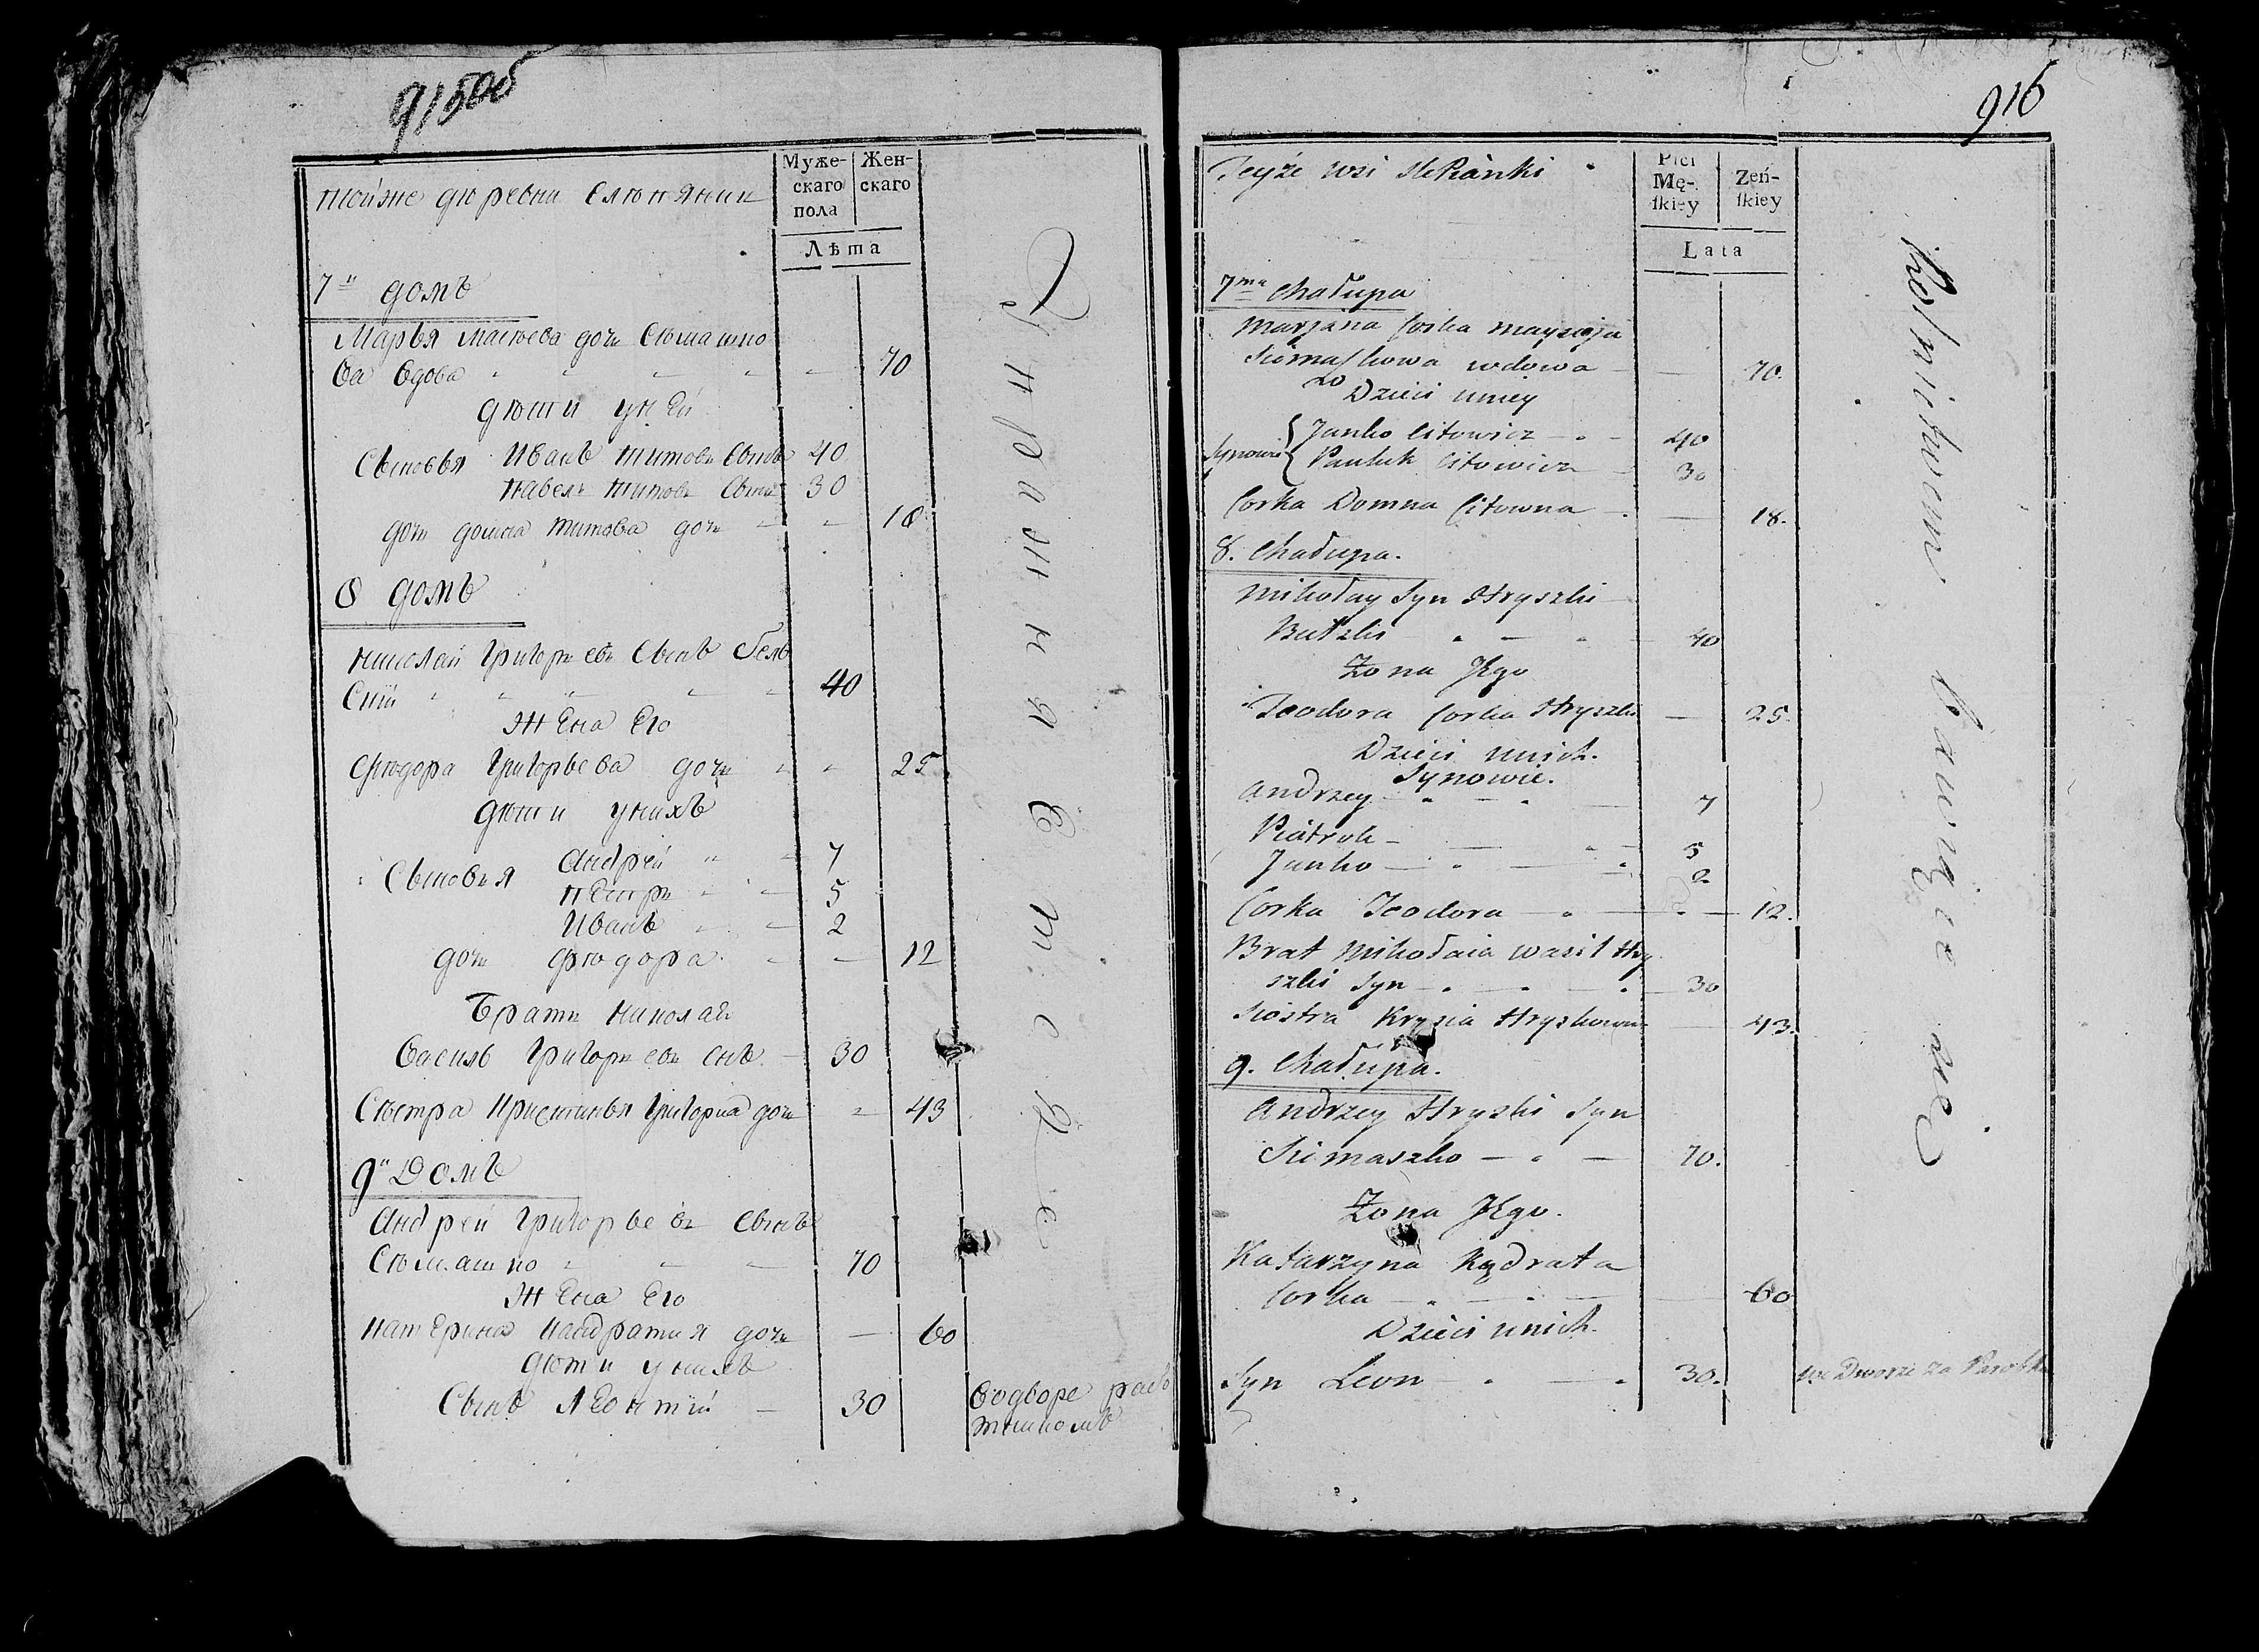 915об
тойже дюревни Слюпянки
Муже-
скаго
пола
Жен-
скаго
Лѣта
7й домъ
Марья Матьева дочь Сюмашко
ва вдова 70
дюти у ней
Сыновья Иванъ Титовъ сынъ 40
Павелъ Титовъ сынъ 30
дочь домна титова дочь 18
8 домъ
Николай Григорьевъ сынъ Бель
Скій 40
Жена Его
Фюдора Григорьева дочь 25
дюти унихъ
Сыновья Андрей 7
Петръ 5
Иванъ 2
дочь Фюдора 12
Братъ Николая
Василь Григорьевъ снъ 30
Сюстра Христинья Григорьва дочь 43
9й Домъ
Андрей Григорьевъ Сынъ
Сюмашко 70
Жена Его
Катерина Кандратия дочь 60
дюти унихъ
Сынъ Леонтій 30
Водворе рабо
тникомъ
916
Teyże wsi Slepianki
Płci
Mę-
ſkiey
Zeń-
ſkiey
Lata
7ma Chałupa
Marjana Corka Maysieja
Siemaszkowa wdowa 70.
Dzieci uniey
Synowie Janko Citowicz 40
Pauluk Citowicz 30
Corka Domna Citowna 18.
8. Chałupa.
Mikołay Syn Hryszki
Bielski 40
Żona Jego
Teodora Corka Hryszki 25.
Dzieci unich.
Synowie.
Andrzey 7
Piatruk 5
Janko 2
Corka Teodora 12.
Brat Mikołaia Wasil Hry
szki Syn 30
Siostra Krysia Hryszkowna 43.
9. Chałupa.
Andrzey Hryszki Syn
Siemaszko 70.
Żona Jego.
Katarzyna Kądrata
Corka 60
Dzieci unich.
Syn Leon 30.
we Dworze za Parobka